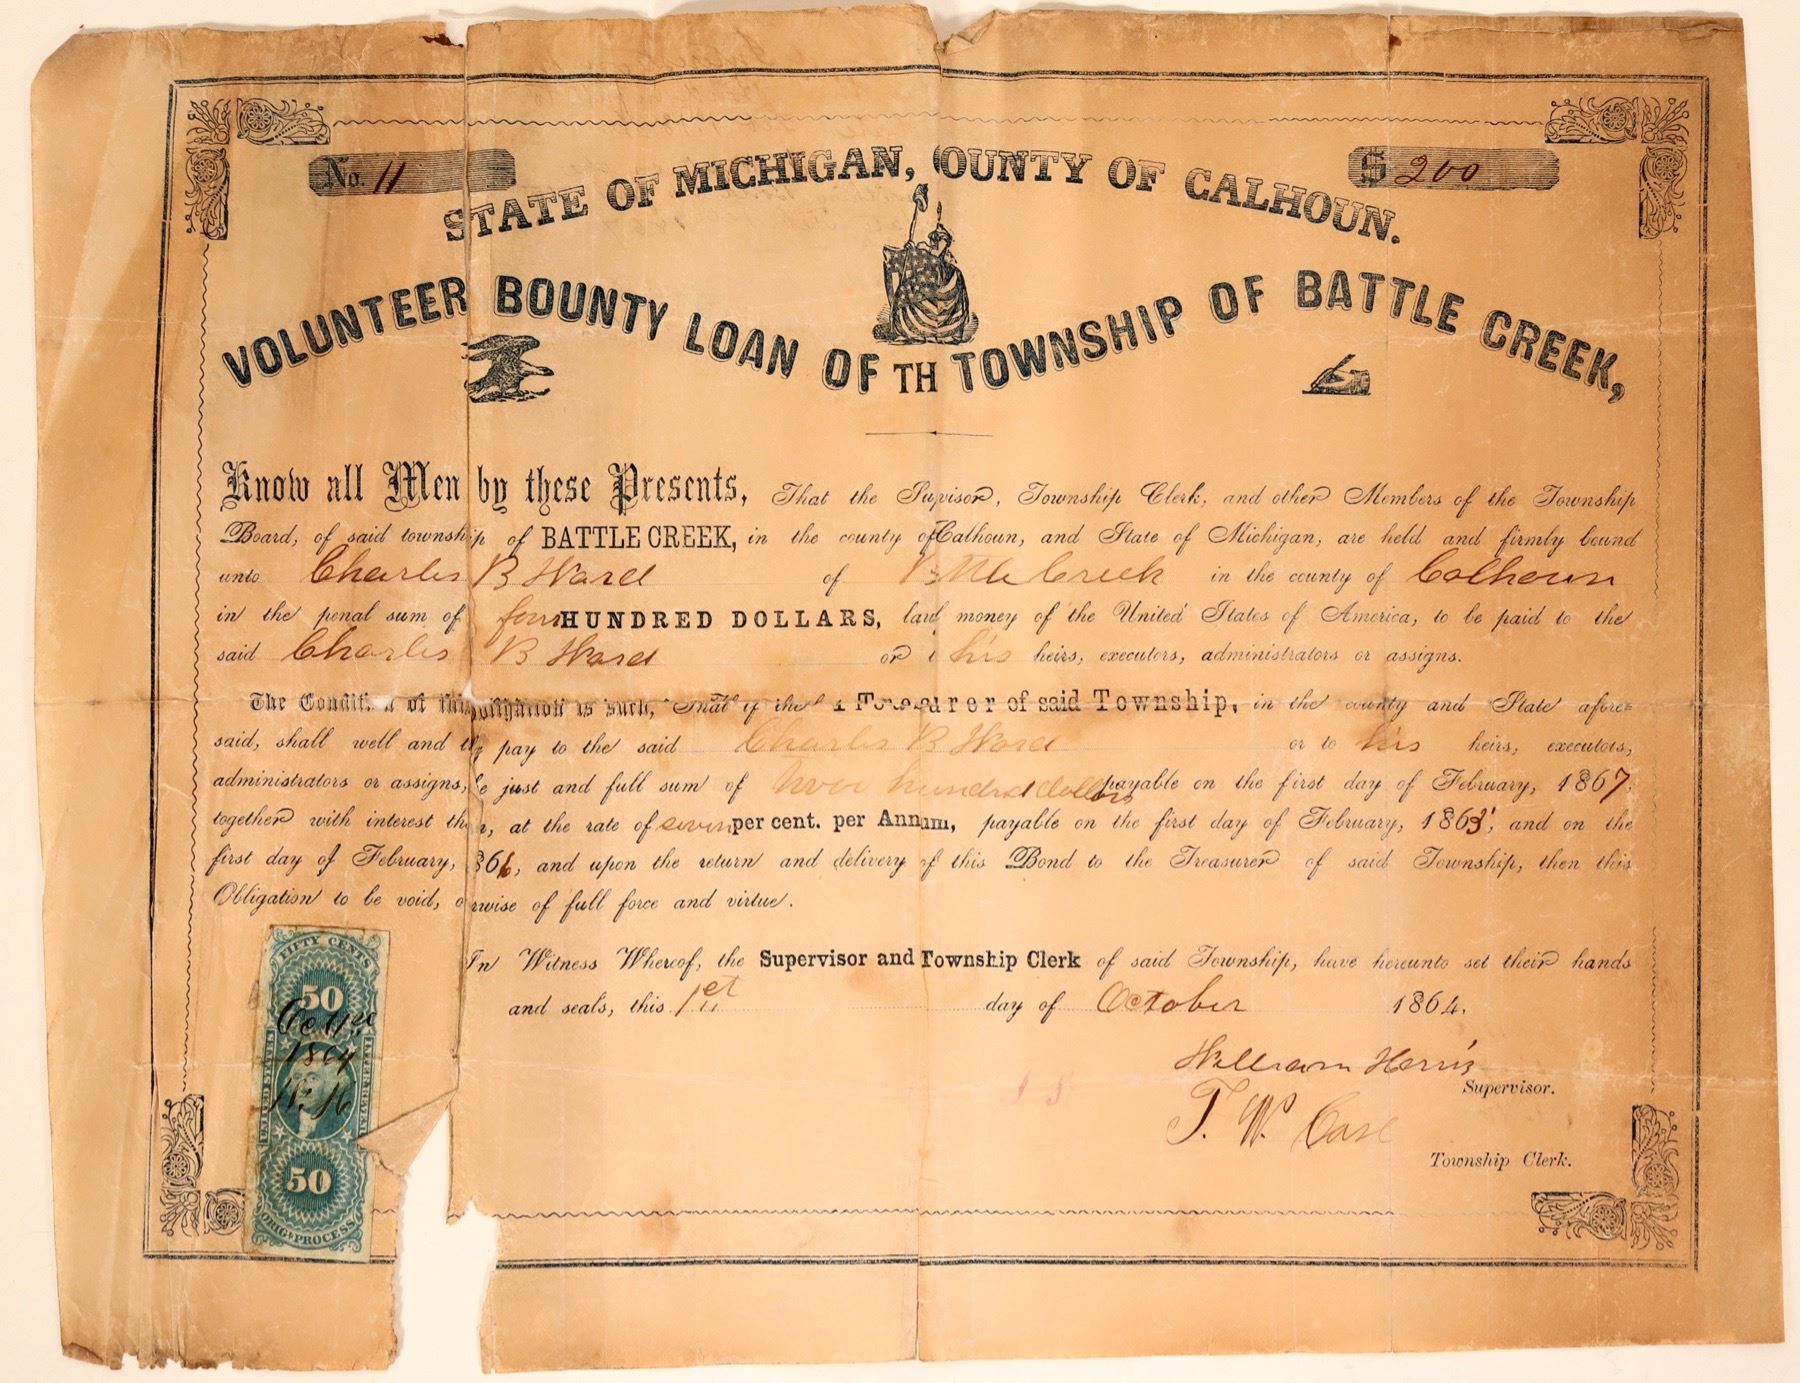 No. 11
$ 200
STATE OF MICHIGAN, OUNTY OF CALHOUN.
VOLUNTEER BOUNTY LOAN OF TH TOWNSHIP OF BATTLE CREEK,
Know all Men by these Presents, That the Supvisor, Township Clerk, and other Members of the Township
Board, of said township of BATTLE CREEK, in the county of Calhoun, and State of Michigan, are held and firmly bound
unto Charles B Ward of Battle Creek in the county of Calhoun
in the penal sum of four HUNDRED DOLLARS, money of the United States of America, to be paid to the
said Charles B Ward or his heirs, executors, administrators or assigns.
The of this is such, That if the Treasurer of said Township, in the county and State afore=
said, shall well and pay to the said Charles B Ward or to his heirs, executors,
administrators or assigns, just and full sum of two hundred dollars payable on the first day of February, 1867,
together with interest at the rate of seven per cent. per Annum, payable on the first day of February, and on the
first day of February, 866, and upon the return and delivery of this Bond to the Treasurer of said Township, then this
Obligation to be void, rwise of full force and virtue.
In Witness Whereof, the Supervisor and Township Clerk of said Township, have hereunto set their hands
and seals, this 1st day of October 1864.
William Herris
Supervisor.
T. W. Case
Township Clerk.
FIFTY CENTS
50
1864
UNITED STATES
INTER. REVENUE
50
ORIG. PROCESS